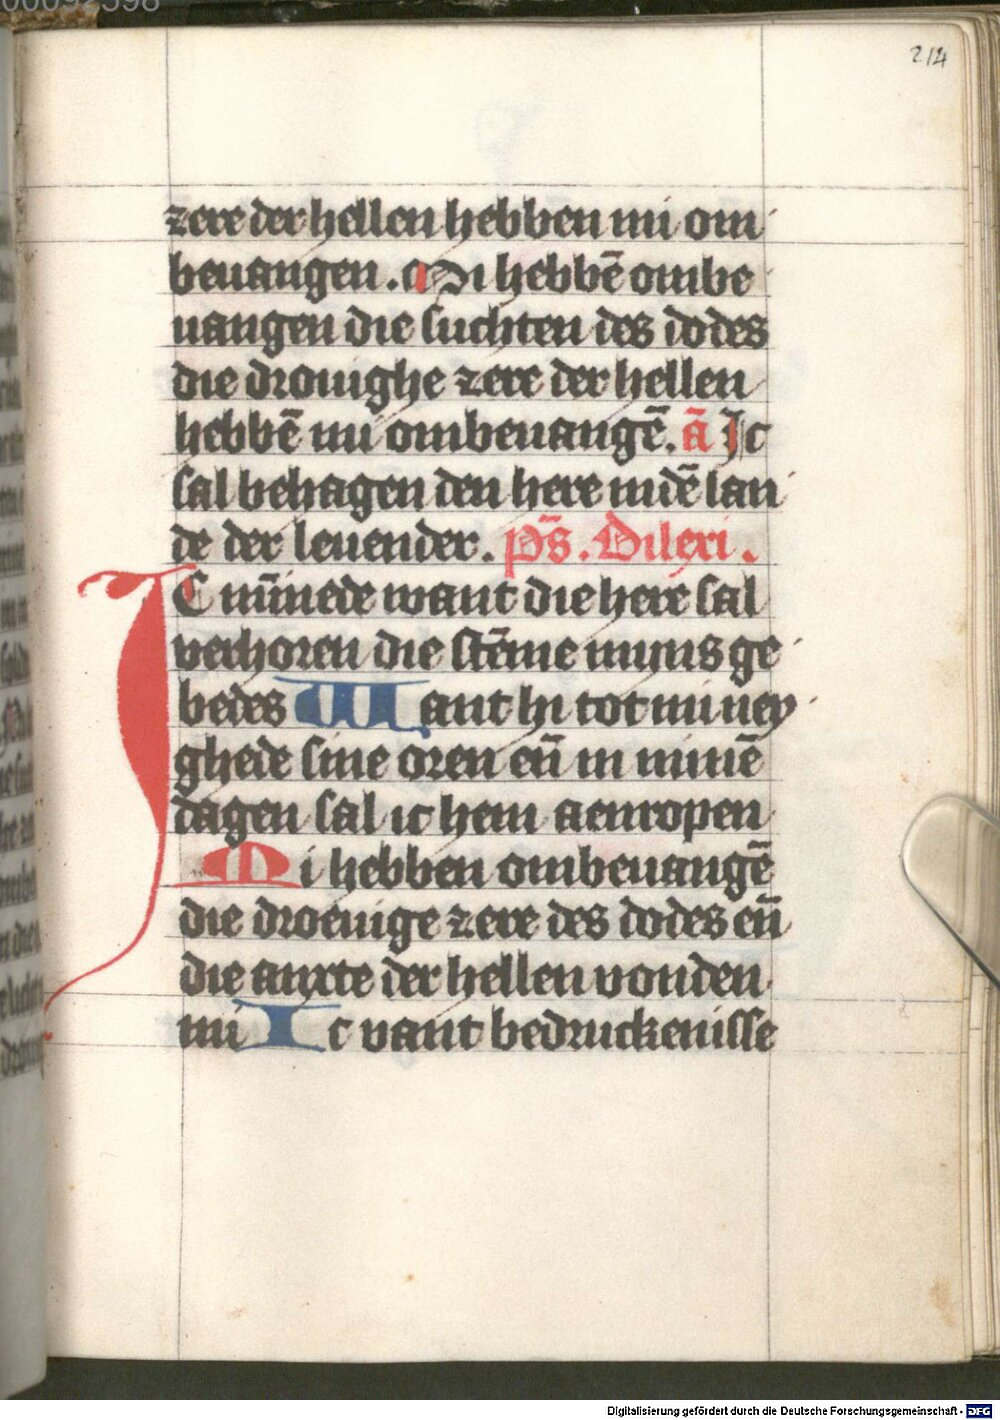 00092398
214
zere der hellen hebben mi om
beuangen. Mi hebbē ombe
uangen die suchten des dodes
die drouighe zere der hellen
hebbē mi ombeuangē. ā Ic
sal behagen den here indē lan
de der leuender. ps̄. Dilexi.
IC minnede want die here sal
verhoren die stēme mijns ge
bedes Want hi tot mi ney
ghede sine oren eñ in minē
dagen sal ic hem aenropen
Mi hebben ombeuangē
die droeuige zere des dodes eñ
die anxte der hellen vonden
mi Ic vant bedruckenisse
Digitalisierung gefördert durch die Deutsche Forschungsgemeinschaft - DFG